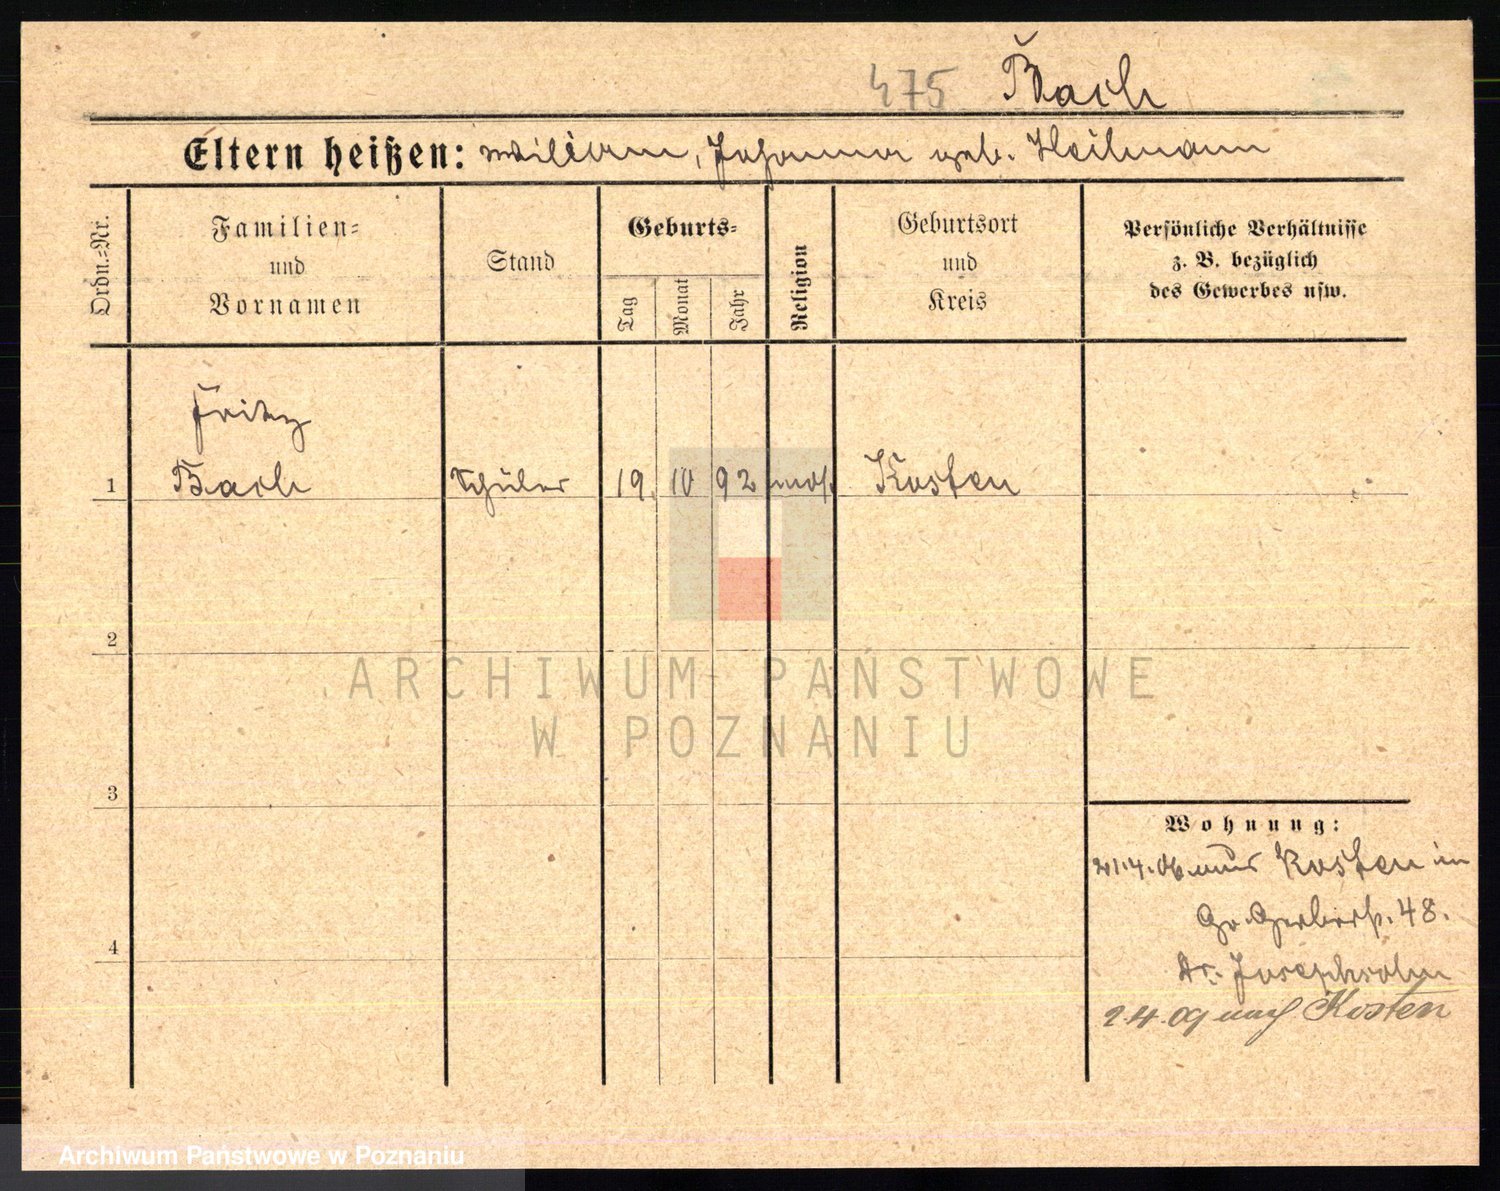 475 Bach
Eltern heißen: William, Johanna geb. Heilmann
Ordn.-Nr.
Familien-
und
Vornamen
Stand
Geburts-
Tag
Monat
Jahr
Religion
Geburtsort
und
Kreis
Persönliche Verhältnisse
z. B. bezüglich
des Gewerbes usw.
Fritz
1 Bach Schüler 19. 10 92 mos. Kosten
2
3
4
Wohnung:
21.4.06 aus Kosten in
Gr. Gerberst. 48.
Dr. Josephsohn
2.4.09 nach Kosten
ARCHIWUM PAŃSTWOWE
W POZNANIU
Archiwum Państwowe w Poznaniu